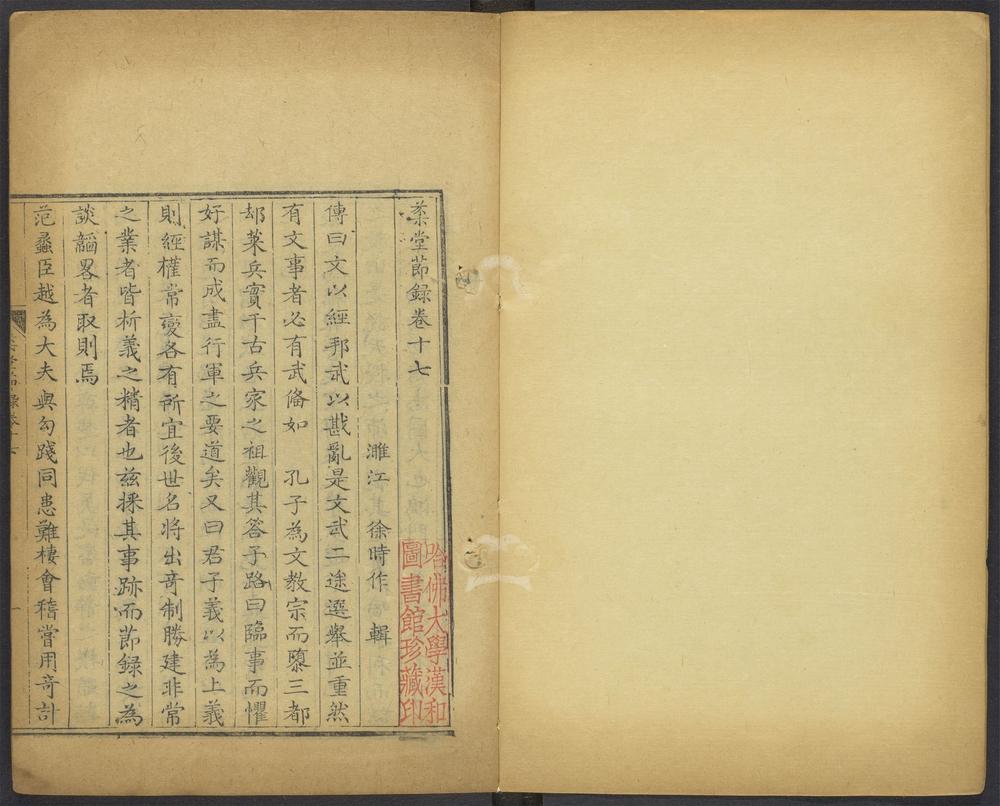 菉堂節録卷十七
濉江 徐時作 輯
傳曰文以經邦武以戡亂是文武二途選舉並重然
有文事者必有武備如 孔子為文教宗而隳三都
却萊兵實千古兵家之祖觀其答子路曰臨事而懼
好謀而成盡行軍之要道矣又曰君子義以為上義
則經權常變各有所宜後世名將出竒制勝建非常
之業者皆析義之精者也兹採其事跡而節録之為
談韜畧者取則焉
范蠡臣越為大夫與勾踐同患難棲會稽嘗用竒計
哈佛大學漢和
圖書館珍藏印